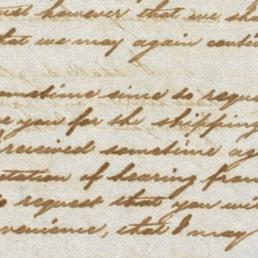 ust however that we sha
hat we may again conti
sometime since to reque
e you for the shipping
received sometime ag
tation of hearing from
to request that you wi
venience, that I may